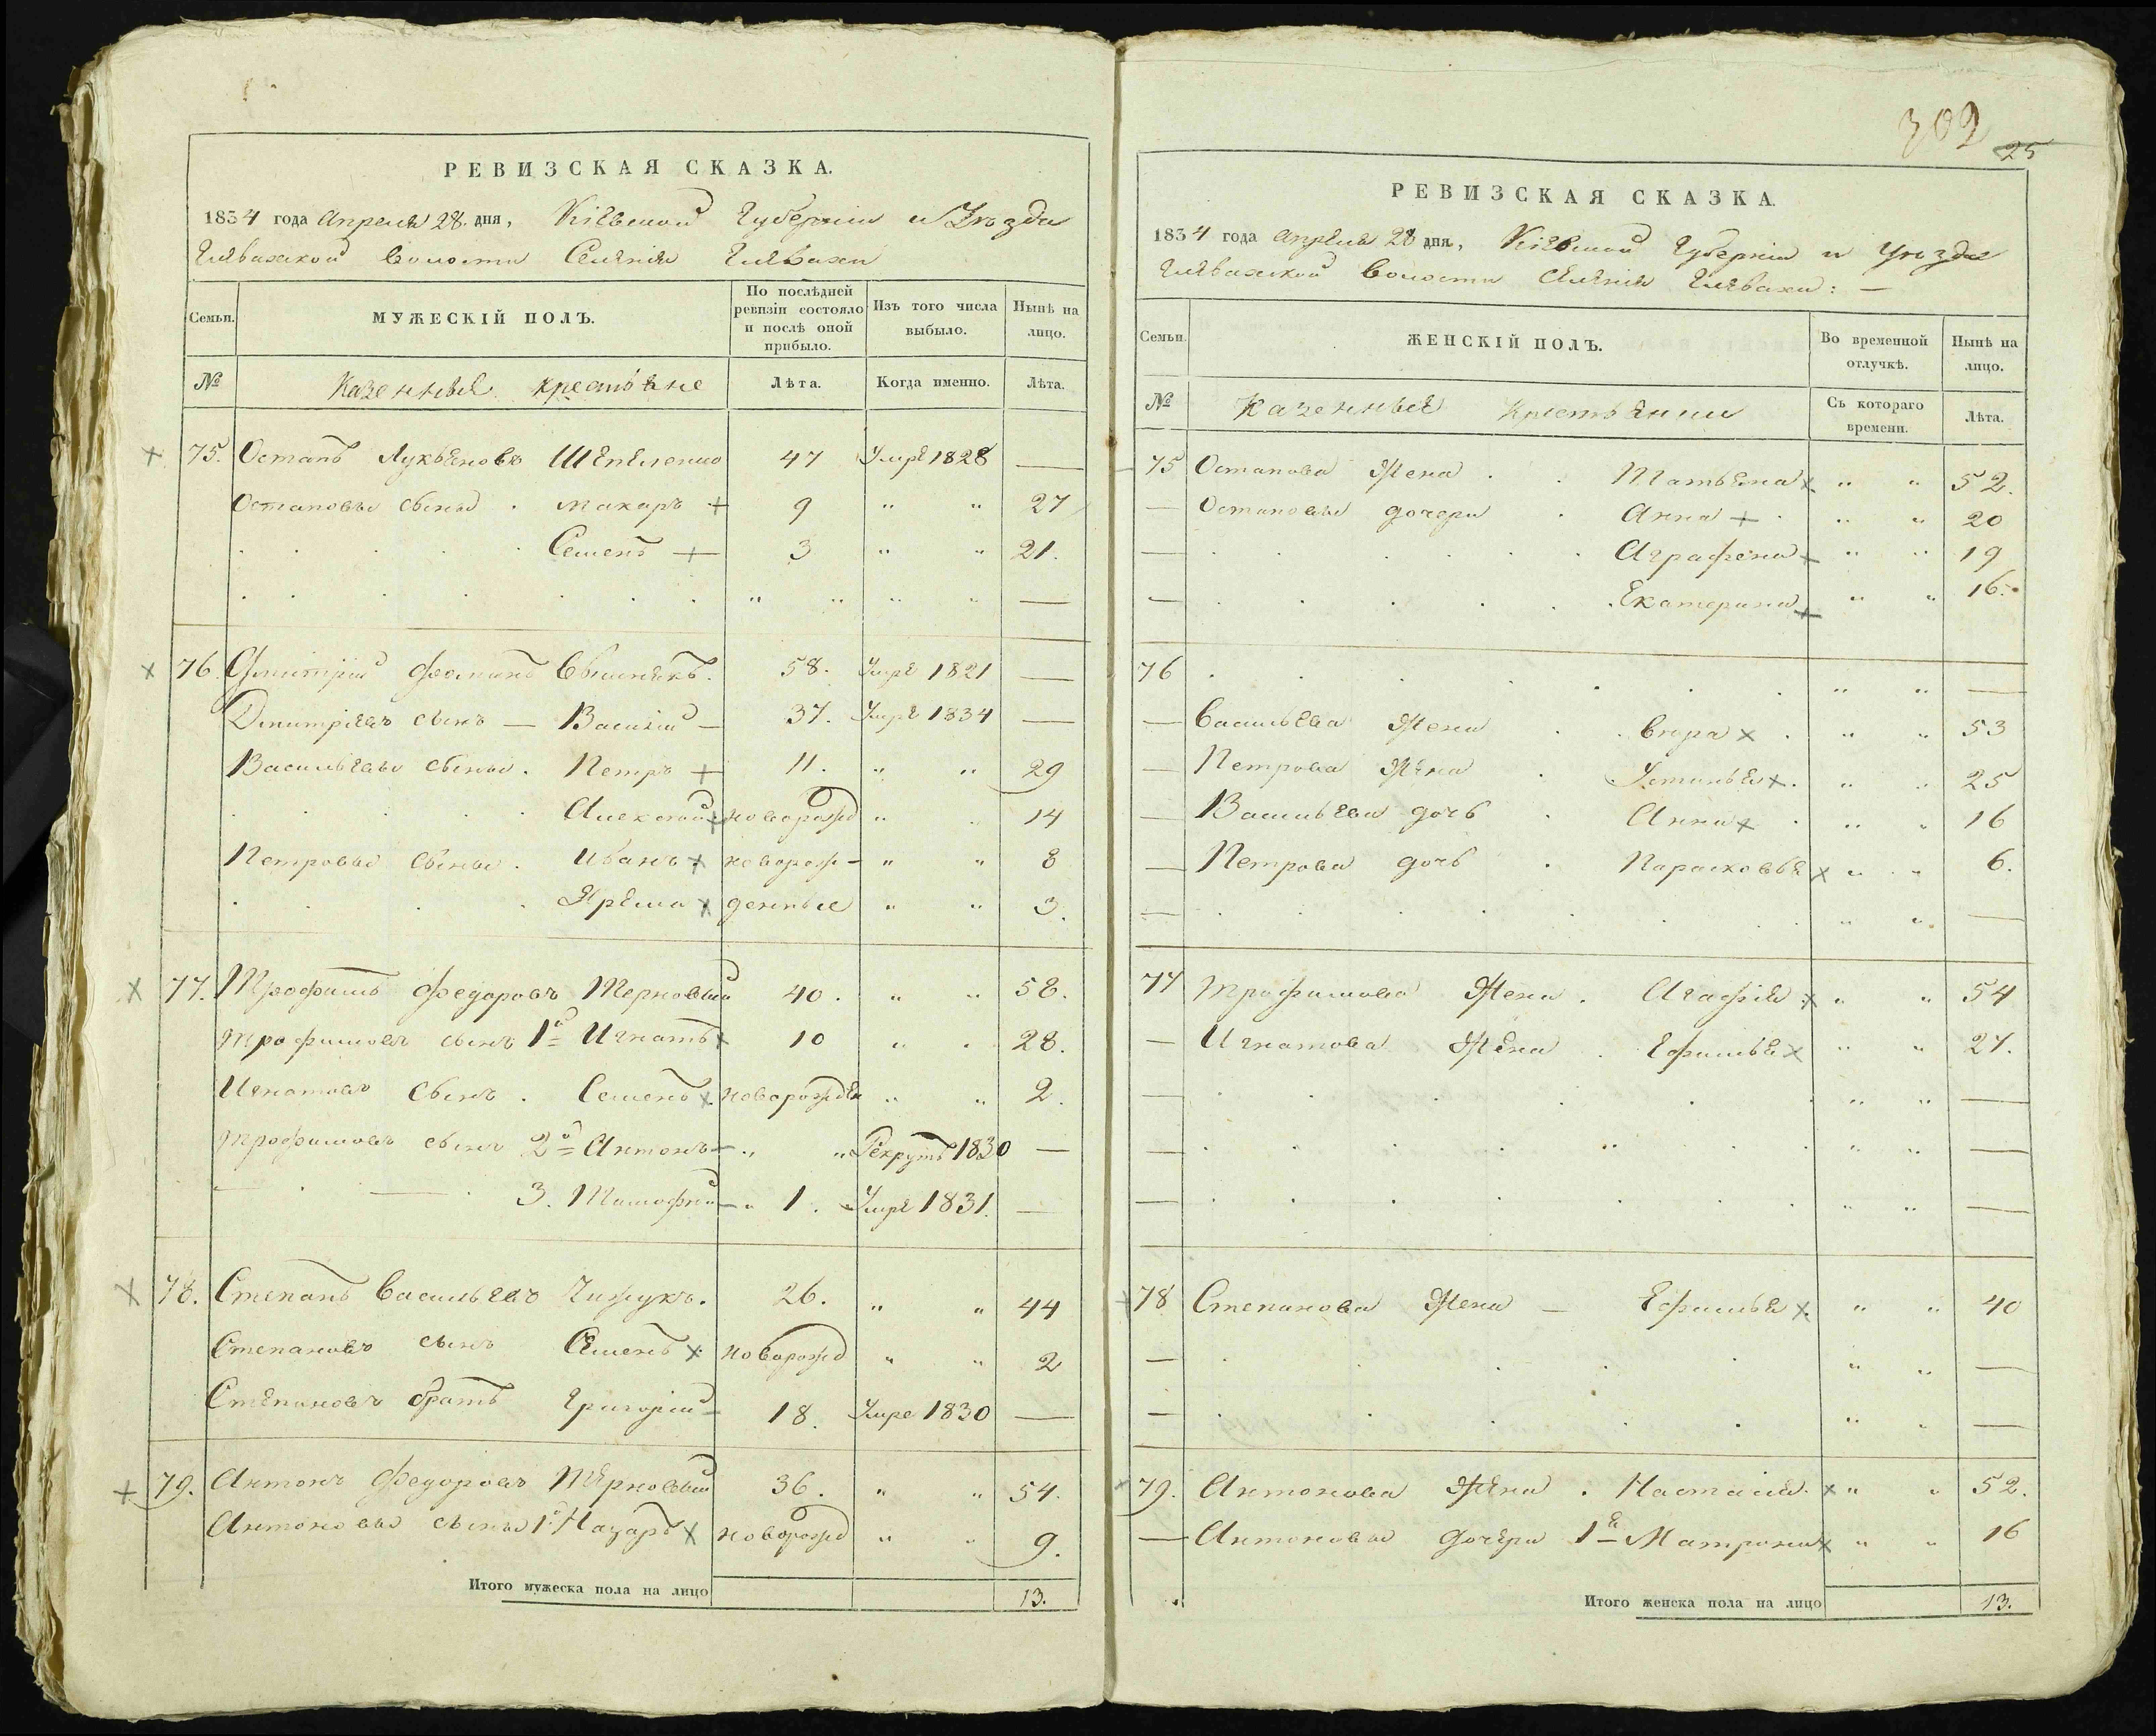 РЕВИЗСКАЯ СКАЗКА.
1834 года Апреля 28. дня, Кіевской Губерніи и Уѣзда
Глевахской Волости Селенія Глевахи
Семьи.
МУЖЕСКІЙ ПОЛЪ.
По послѣдней
ревизіи состояло
и послѣ оной
прибыло.
Изъ того числа
выбыло.
Нынѣ на
лицо.
№ Казенные крестьяне Лѣта. Когда именно. Лѣта.
75. Остапъ Лукьяновъ Шепеленко 47 Умре 1828 —
Остаповы сыны . Макаръ + 9 " " 27
. . . . Семенъ + 3 " " 21.
. . . . . . . " " " " —
76. Дмитрій Фоминъ 58. Умре 1821 —
Дмитріевъ сынъ — Василій — 37. Умре 1834 —
Васильевы сыны . Петръ + 11. " " 29
. . . . Алексей + новорожд " " 14
Петровы сыны . Иванъ + новорож- " " 8
. . . . Ярема x денные " " 3.
77. Трофимъ Федоровъ Терновый 40. " " 58.
Трофимовъ сынъ 1й Игнатъ x 10 " " 28.
Игнатовъ сынъ . Семенъ x новорожде " " 2.
Трофимовъ сынъ 2й Антонъ — " " Рекрутъ 1830 —
— . — . 3. Тимофей — " 1. Умре 1831. —
78. Степанъ Васильевъ Чижукъ. 26. " " 44
Степановъ сынъ Семенъ x новорожд " " 2
Степановъ братъ Григорій — 18. Умре 1830 —
79. Антонъ Федоровъ Терновый 36. " " 54.
Антоновы сыны 1й Назаръ x новорожд " " 9.
Итого мужеска пола на лицо 13.
302
25
РЕВИЗСКАЯ СКАЗКА.
1834 года Апреля 28 дня, Кіевской Губерніи и Уѣзда
Глевахской Волости Селенія Глевахи: —
Семьи.
ЖЕНСКІЙ ПОЛЪ.
Во временной
отлучкѣ.
Нынѣ на
лицо.
№ Казенные Крестьянки
Съ котораго
времени.
Лѣта.
75 Остапова Жена . . Татьяна x " " 52.
— Остаповы дочери . Анна + . " " 20
— . . . . . Аграфена + " " 19
— . . . . . Екатерина + " " 16.
76 . . . . . . . " " —
— Васильева Жена . . Вера x . " " 53
— Петрова Жена . . Устинья x . " " 25
— Васильева дочь . Анна x . " " 16
— Петрова дочь . Парасковья x " " 6.
— . . . . . . . " " —
77 Трофимова Жена . Агафія x " " 54
— Игнатова Жена . Ефимья x " " 27.
— . . . . . " " —
— . . . . . . " " —
— . . . . . . . " " —
78 Степанова Жена — Ефимья x " " 40
— . . . . . " " —
— . . . . . " " —
79. Антонова Жена . Настасія. x " " 52.
— Антоновы Дочери 1я Матрона x " " 16
Итого женска пола на лицо 13.